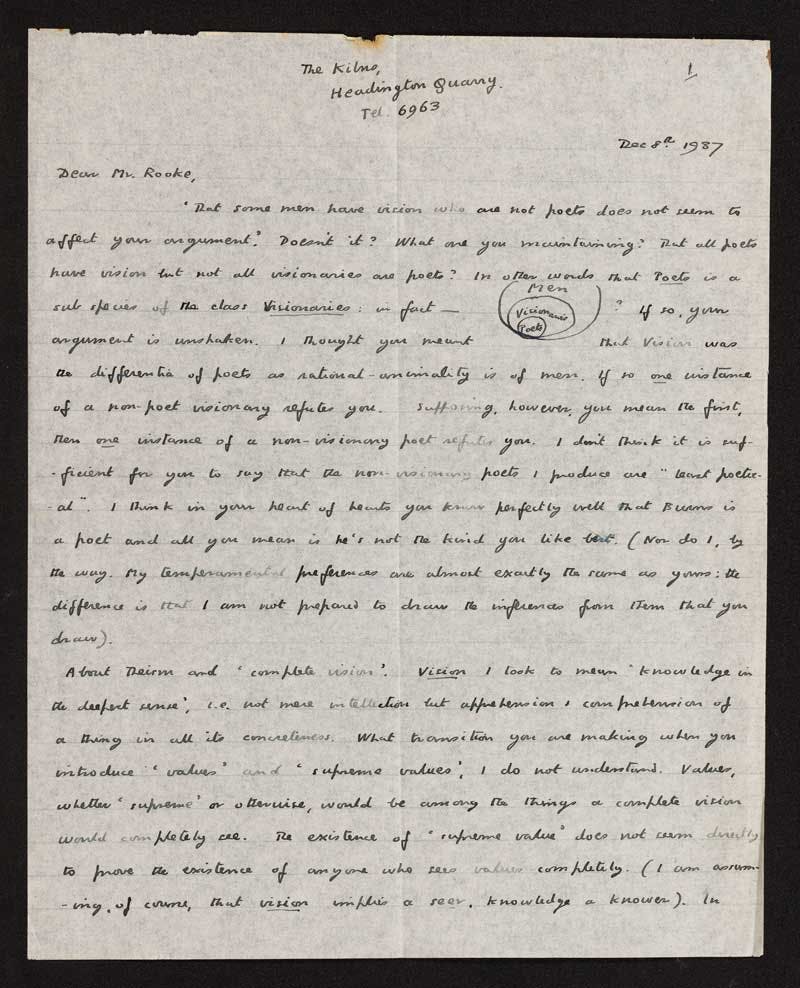 The Kilns,
1
Headington Quarry.
Tel. 6963
Dec 8th 1937
Dear Mr. Rooke,
'That some men have vision who are not poets does not seem to
affect your argument.' Doesn't it? What are you maintaining? That all poets
have vision but not all visionaries are poets? In other words that Poets is a
Men
sub species of the class Visionaries: in fact — Visionaries ? If so, your
Poets
argument is unshaken. I thought you meant that Vision was
the differentia of poets as rational-animality is of men. If so one instance
of a non-poet visionary refutes you. Supposing, however, you mean the first,
then one instance of a non-visionary poet refutes you. I don't think it is suf-
-ficient for you to say that the non-visionary poets I produce are "least poetic-
-al". I think in your heart of hearts you know perfectly well that Burns is
a poet and all you mean is he's not the kind you like best. (Nor do I, by
the way. My temperamental preferences are almost exactly the same as yours: the
difference is that I am not prepared to draw the inferences from them that you
draw).
About Theism and 'complete vision'. Vision I took to mean 'knowledge in
the deepest sense', i.e. not mere intellection but apprehension & comprehension of
a thing in all its concreteness. What transition you are making when you
introduce 'values' and 'supreme values', I do not understand. Values,
whether 'supreme' or otherwise, would be among the things a complete vision
would completely see. The existence of 'supreme value' does not seem directly
to prove the existence of anyone who sees values completely. (I am assum-
-ing, of course, that vision implies a seer, knowledge a knower). In